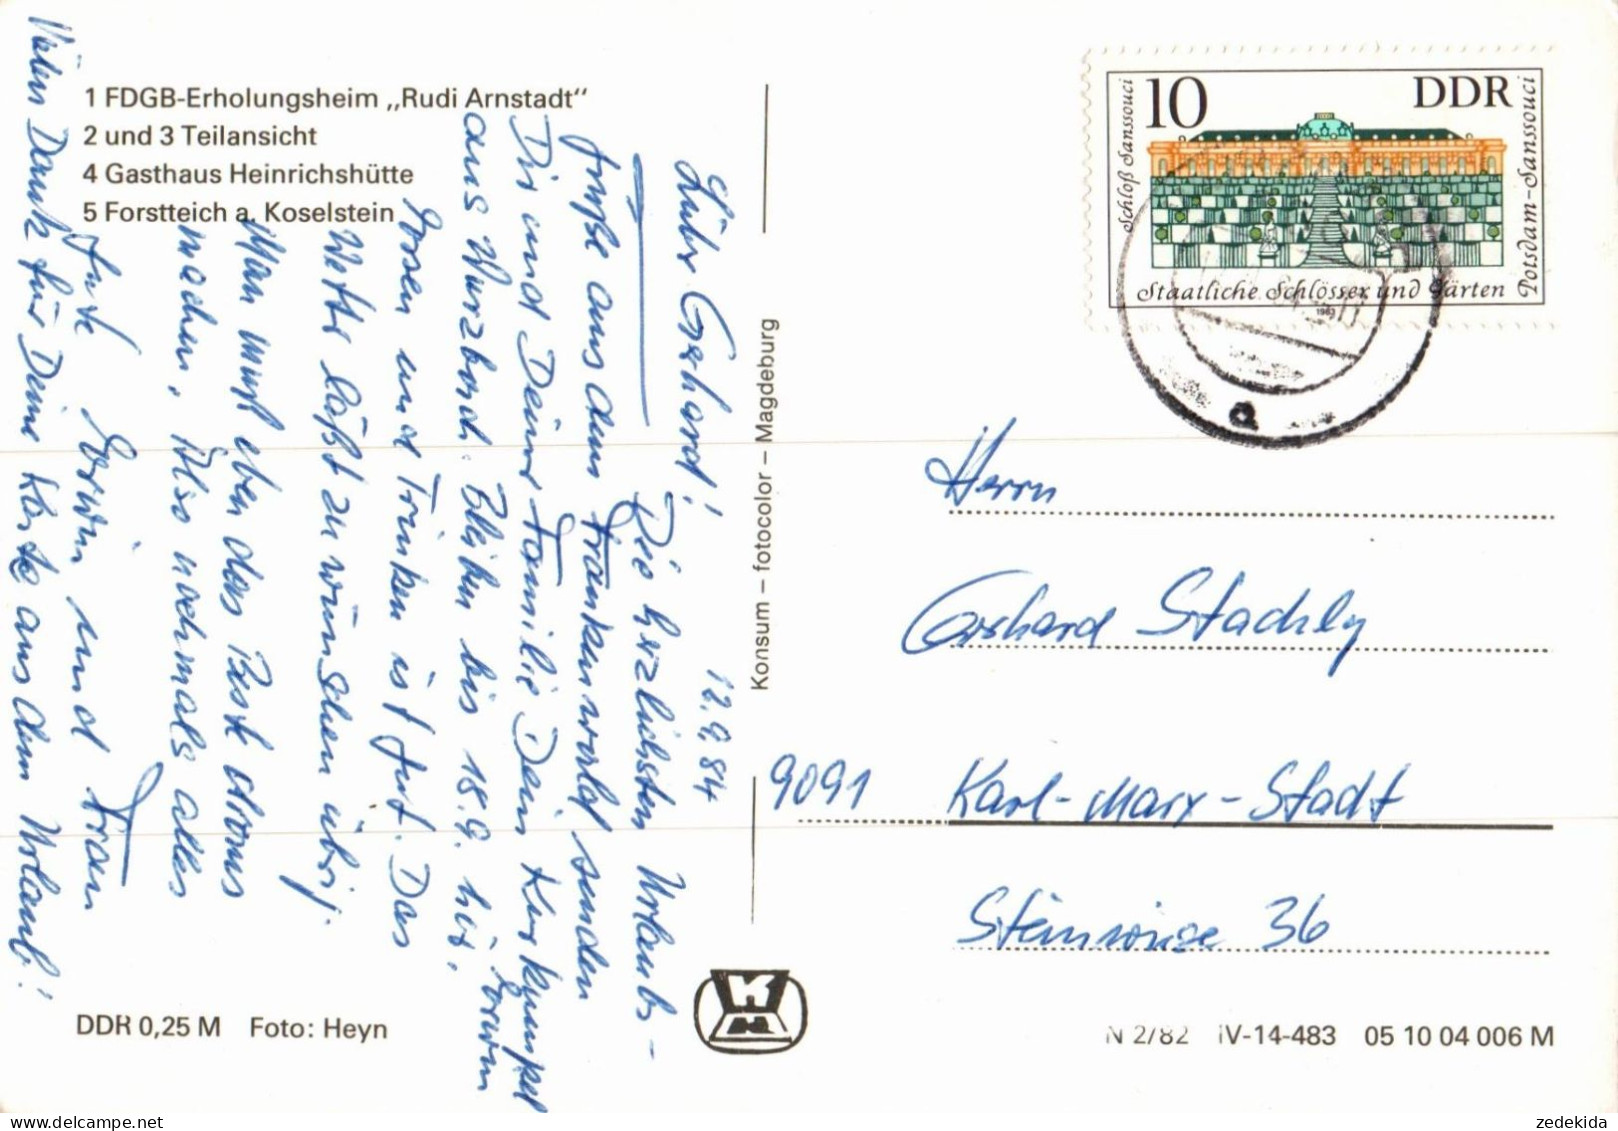 1 FDGB-Erholungsheim „Rudi Arnstadt"
2 und 3 Teilansicht
4 Gasthaus Heinrichshütte
5 Forstteich a. Koselstein
12.9.84
Lieber Gerhard!
Die herzlichsten Urlaubs-
grüße aus dem Frankenwald senden
Dir und Deiner Familie Dein Kurkumpel
aus Wurzbach. Bleiben bis 18.9. hier. Erwin
Essen und Trinken ist gut. Das
Wetter läßt zu wünschen übrig.
Man muß eben das Beste draus
machen. Also nochmals alles
Gute Erwin und Frau
Vielen Dank für Deine Karte aus dem Urlaub!
Konsum – fotocolor – Magdeburg
10
DDR
Schloß Sanssouci
Potsdam-Sanssouci
Staatliche Schlösser und Gärten
1983
a
Herrn
Gerhard Stachly
9091 Karl-Marx-Stadt
Steinwiese 36
DDR 0,25 M Foto: Heyn
N 2/82 IV-14-483 05 10 04 006 M
zedekida